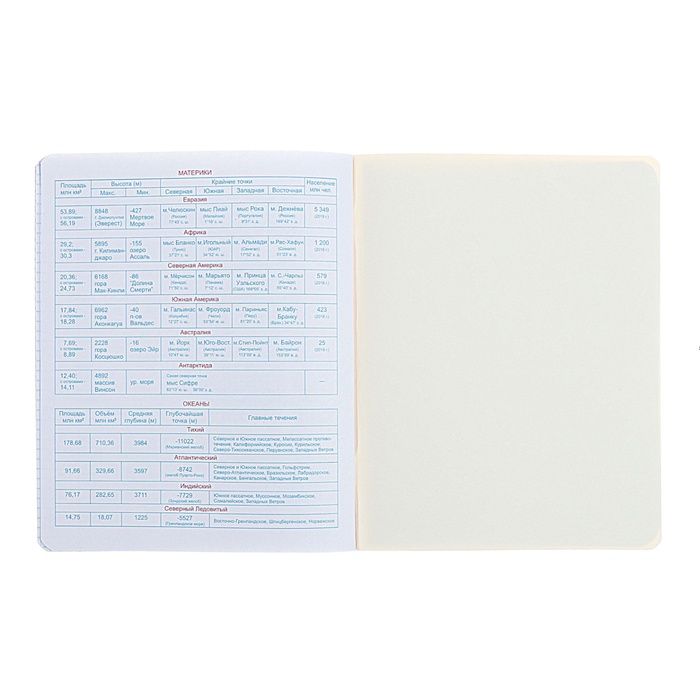 МАТЕРИКИ
Площадь млн км² Высота (м) Крайние точки Население млн чел.
Макс. Мин. Северная Южная Западная Восточная
Евразия
53,89; 8848 -427 м.Челюскин мыс Пиай мыс Рока м. Дежнёва 5 349
с островами - г.Джомолунгма Мертвое (Россия) (Малайзия) (Португалия) (Россия) (2018 г.)
56,19 (Эверест) Море
Африка
29,2; 5895 -155 мыс Бланко м.Игольный м. Альмади м.Рас-Хафун 1 200
с островами - г. Килиман- озеро (Тунис) (ЮАР) (Сенегал) (Сомали) (2018 г.)
30,3 джаро Ассаль
Северная Америка
20,36; 6168 -86 м. Мёрчисон м. Марьято м. Принца С.-Чарльз 579
с островами - гора "Долина (Канада) (Панама) Уэльского (Канада) (2018 г.)
24,73 Мак-Кинли Смерти"
Южная Америка
17,84; 6962 -40 м. Гальинас м. Фроуорд м. Париньяс м.Кабу- 423
с островами - гора п-ов (Колумбия) (Чили) (Перу) Бранку (2018 г.)
18,28 Аконкагуа Вальдес
Австралия
7,69; 2228 -16 м. Йорк м.Юго-Вост. м.Стип-Пойнт м. Байрон 25
с островами - гора озеро Эйр (Австралия) (Австралия) (Австралия) (Австралия) (2018 г.)
8,89 Косцюшко
Антарктида
12,40; 4892 ур. моря Самая северная точка —
с островами - массив мыс Сифре
14,11 Винсон
ОКЕАНЫ
Площадь млн км² Объём млн км³ Средняя глубина (м) Глубочайшая точка (м) Главные течения
Тихий
178,68 710,36 3984 -11022 (Марианский желоб) Северное и Южное пассатное, Межпассатное противо-
течение, Калифорнийское, Куросио, Курильское,
Северо-Тихоокеанское, Перуанское, Западных Ветров
Атлантический
91,66 329,66 3597 -8742 (желоб Пуэрто-Рико) Северное и Южное пассатное, Гольфстрим,
Северо-Атлантическое, Бразильское, Лабрадорское,
Канарское, Бенгальское, Западных Ветров
Индийский
76,17 282,65 3711 -7729 (Зондский желоб) Южное пассатное, Муссонное, Мозамбикское,
Сомалийское, Западных Ветров
Северный Ледовитый
14,75 18,07 1225 -5527 (Гренландское море) Восточно-Гренландское, Шпицбергенское, Норвежское